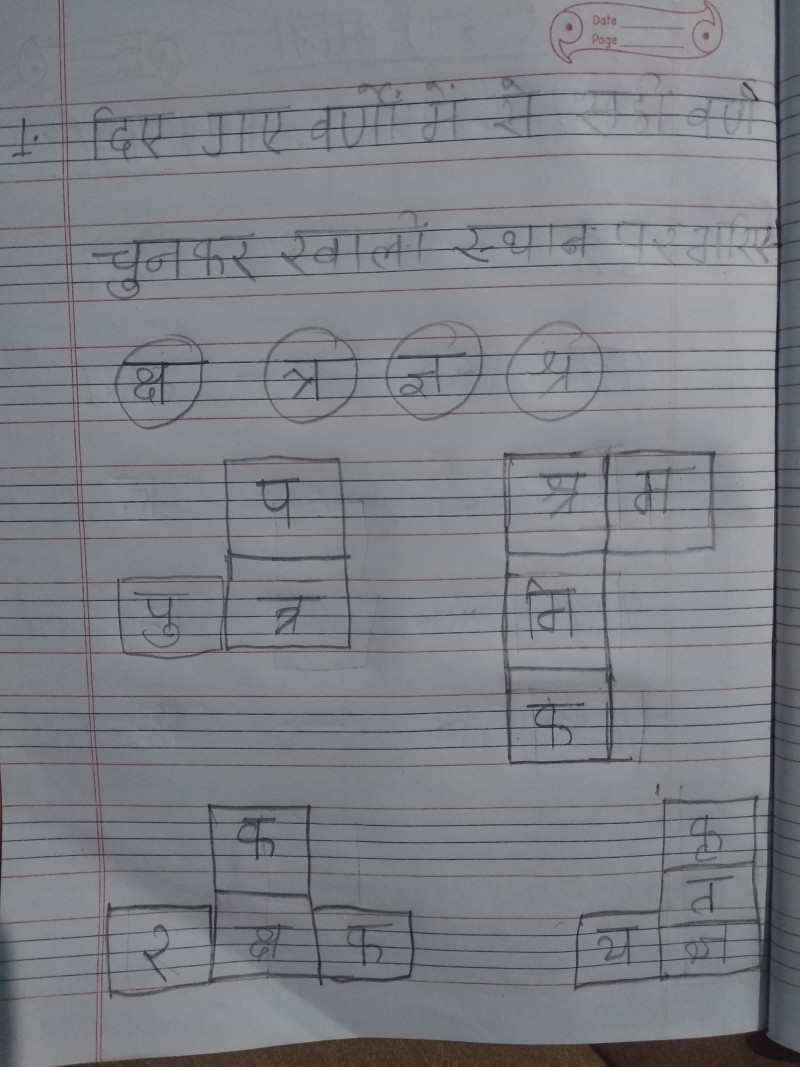 Date
Page
1. दिए गए वर्णों में से सही वर्ण
चुनकर खाली स्थान पर
क्ष त्र ज्ञ श्र
प
पु त्र
श्र म
मि
क
क
र क्ष क
कृ
त
य ज्ञ